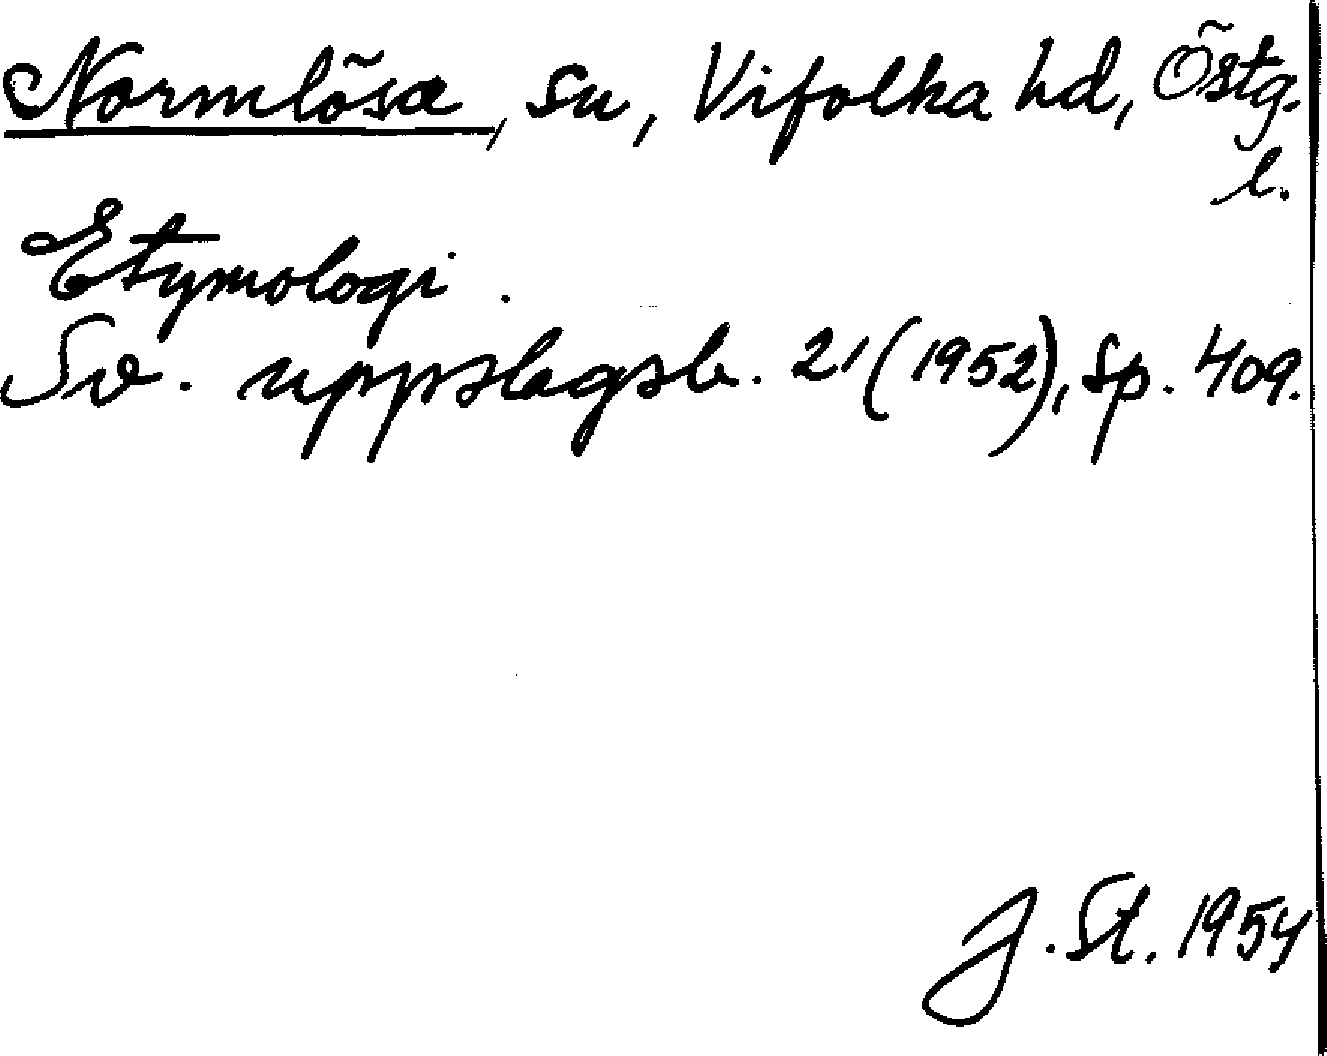 Normlösa, sn, Vifolka hd, Östg.
l.
Etymologi.
Sv. uppslagsb. 21 (1952), sp. 409.
J. St. 1954